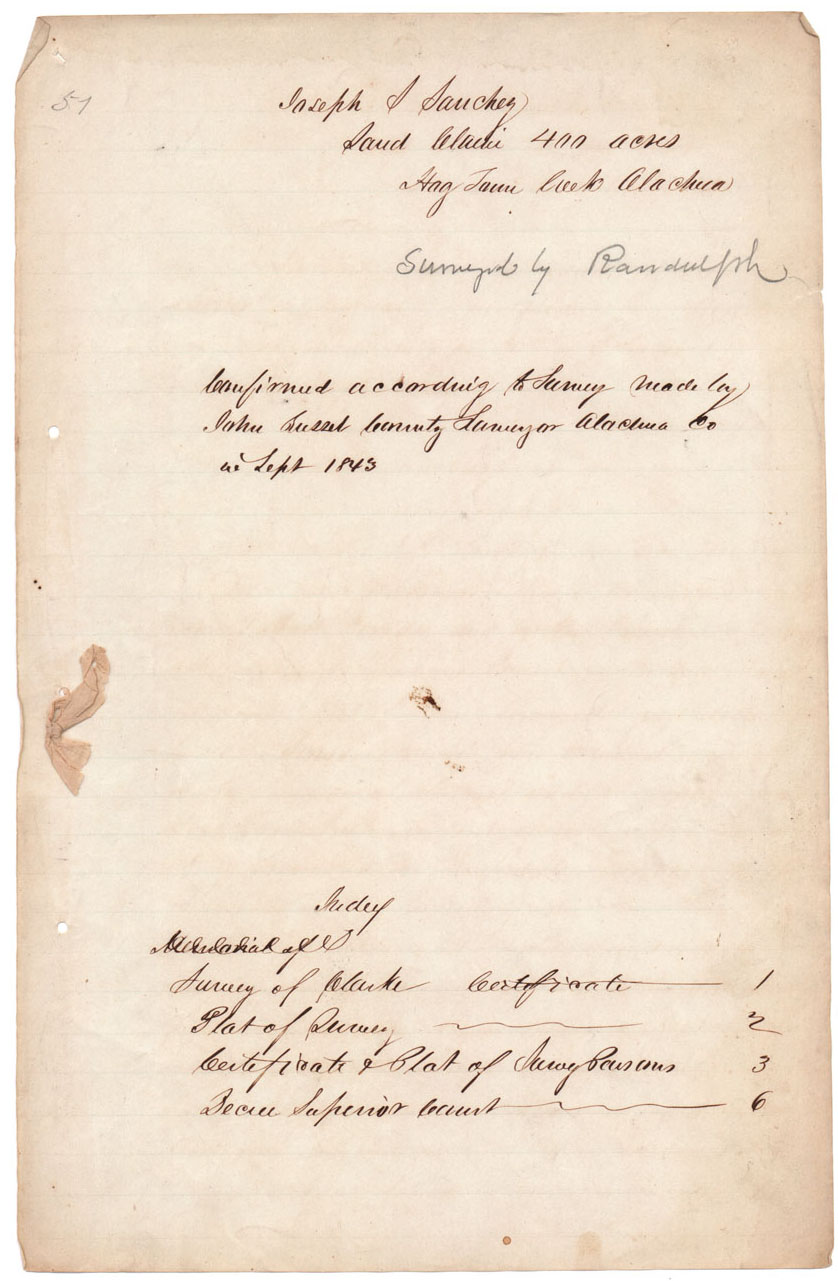 51
Joseph S Sanchez
Land Claim 400 acres
Hog Town Creek Alachua
Surveyed by Randolph
Confirmed according to Survey made by
John County Surveyor Alachua Co
in Sept 1843
Index
Memorial of
Survey of Clarke Certificate 1
Plat of Survey 2
Certificate & Plat of Survey Parsons 3
Decree Superior Court 6